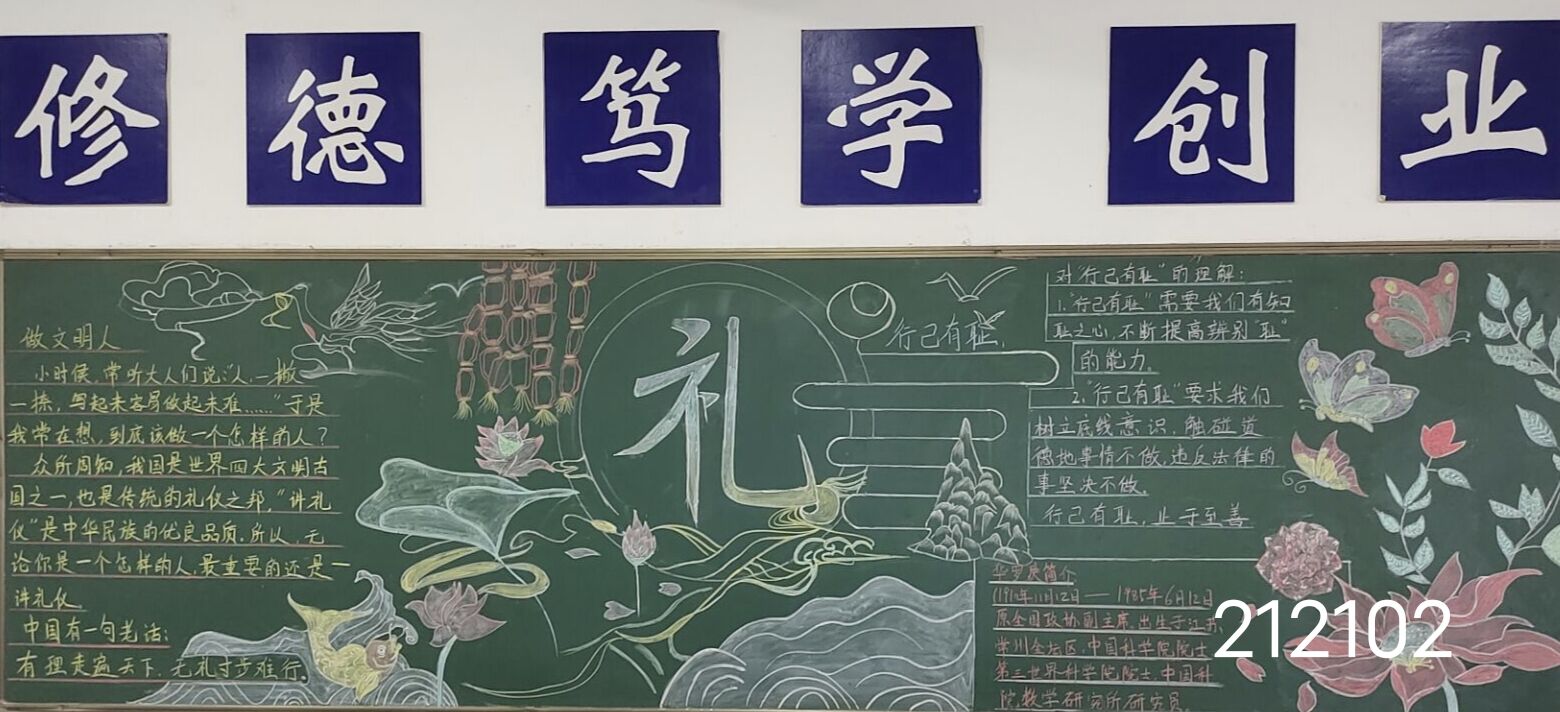 修 德 笃 学 创 业
做文明人
小时候,常听大人们说"人,一撇
一捺,写起来容易做起来难……"于是
我常在想,到底该做一个怎样的人?
众所周知,我国是世界四大文明古
国之一,也是传统的礼仪之邦,"讲礼
仪"是中华民族的优良品质,所以,无
论你是一个怎样的人,最重要的还是一
讲礼仪。
中国有一句老话:
有理走遍天下,无礼寸步难行。
礼
行己有耻,
对"行己有耻"的理解:
1."行己有耻"需要我们有知
耻之心,不断提高辨别"耻"
的能力。
2."行己有耻"要求我们
树立底线意识,触碰道
德地事情不做,违反法律的
事坚决不做。
行己有耻,止于至善
华罗庚简介
(1910年11月12日——1985年6月12日
原全国政协副主席,出生于江苏
常州金坛区,中国科学院院士
第三世界科学院院士,中国科
院数学研究所研究员。
212102